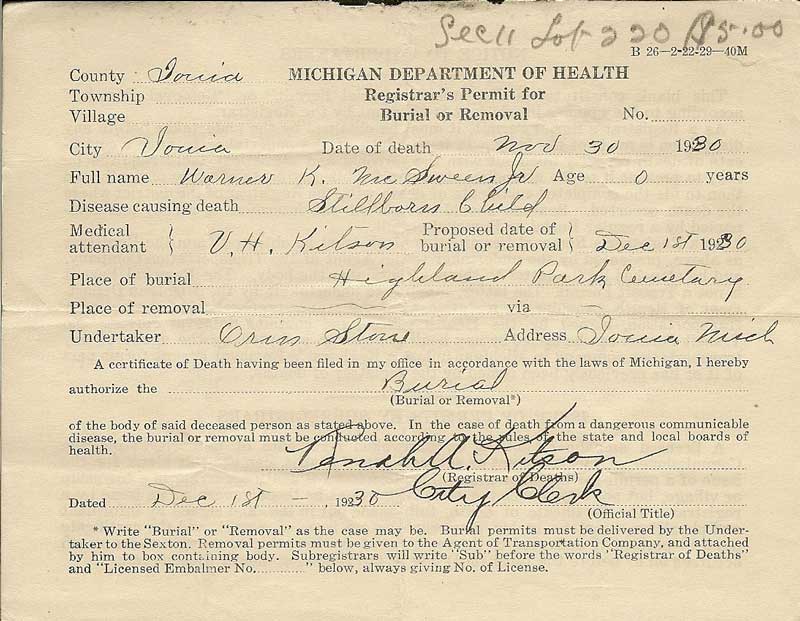 Sec 11 Lot 220 $5.00
B 26—2-22-29—40M
County Ionia MICHIGAN DEPARTMENT OF HEALTH
Township Registrar's Permit for
Village Burial or Removal No.
City Ionia Date of death Nov 30 1930
Full name Warner K. McSween Jr Age 0 years
Disease causing death Stillborn Child
Medical attendant } V. H. Kitson Proposed date of burial or removal } Dec 1st 1930
Place of burial Highland Park Cemetary
Place of removal — via —
Undertaker Orin Stone Address Ionia Mich
A certificate of Death having been filed in my office in accordance with the laws of Michigan, I hereby
authorize the Burial
(Burial or Removal*)
of the body of said deceased person as stated above. In the case of death from a dangerous communicable
disease, the burial or removal must be conducted according to the rules of the state and local boards of
health.
A. Kitson
(Registrar of Deaths)
Dated Dec 1st — , 1930 City Clerk
(Official Title)
* Write "Burial" or "Removal" as the case may be. Burial permits must be delivered by the Under-
taker to the Sexton. Removal permits must be given to the Agent of Transportation Company, and attached
by him to box containing body. Subregistrars will write "Sub" before the words "Registrar of Deaths"
and "Licensed Embalmer No.........." below, always giving No. of License.